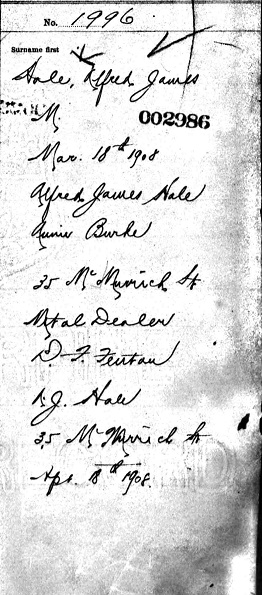 No. 1996
Surname first
Hale, Alfred James
M.
002986
Mar. 18th 1908
Alfred James Hale
Annie Burke
35 McMurrich St
Metal Dealer
D. F. Fenton
A. J. Hale
35 McMurrich St
Apr. 18th 1908.